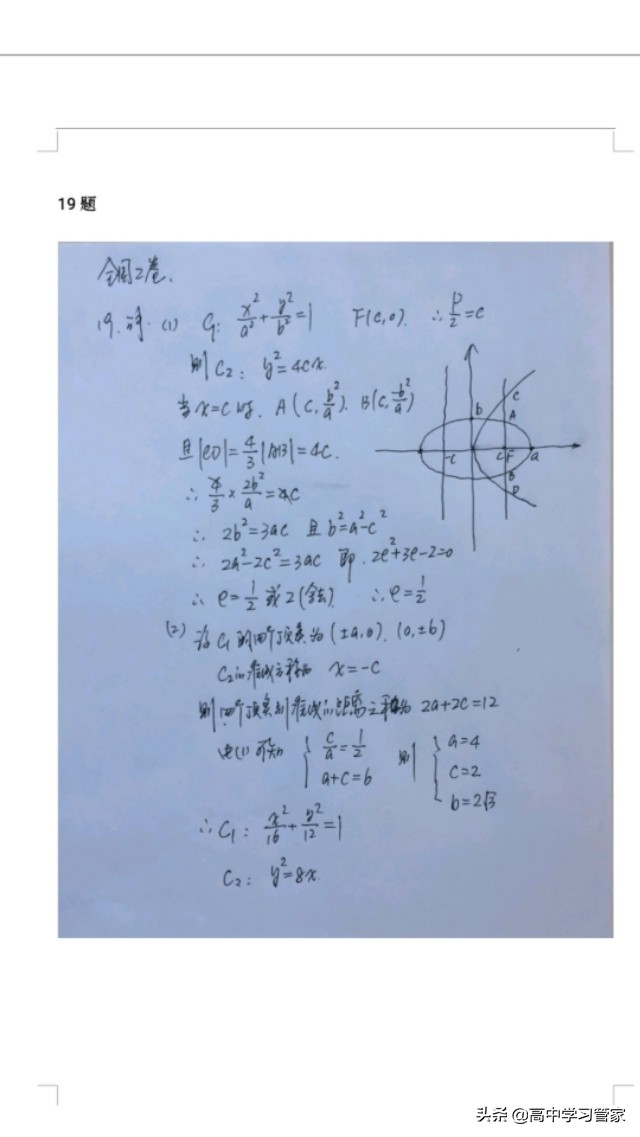 19 题
全国2卷.
19. 解. (1) C₁: x²/a² + y²/b² = 1 F(c,0). ∴ p/2 = c
则 C₂: y² = 4cx.
当 x=c 时. A(c, b²/a). B(c, -b²/a)
且 |CD| = 4/3 |AB| = 4c.
∴ 4/3 × 2b²/a = 4c
∴ 2b² = 3ac 且 b² = a² - c²
∴ 2a² - 2c² = 3ac 即. 2e² + 3e - 2 = 0
∴ e = 1/2 或 2 (舍去). ∴ e = 1/2
b
C
A
-c
c
F
a
B
D
(2) 设 C₁ 的四个顶点为 (±a,0). (0,±b)
C₂的准线方程为 x = -c
则四个顶点到准线的距离之和为 2a+2c=12
由(1)可知 { c/a = 1/2 则 { a=4
a+c=6 c=2
b=2√3
∴ C₁: x²/16 + y²/12 = 1
C₂: y² = 8x.
头条 @高中学习管家